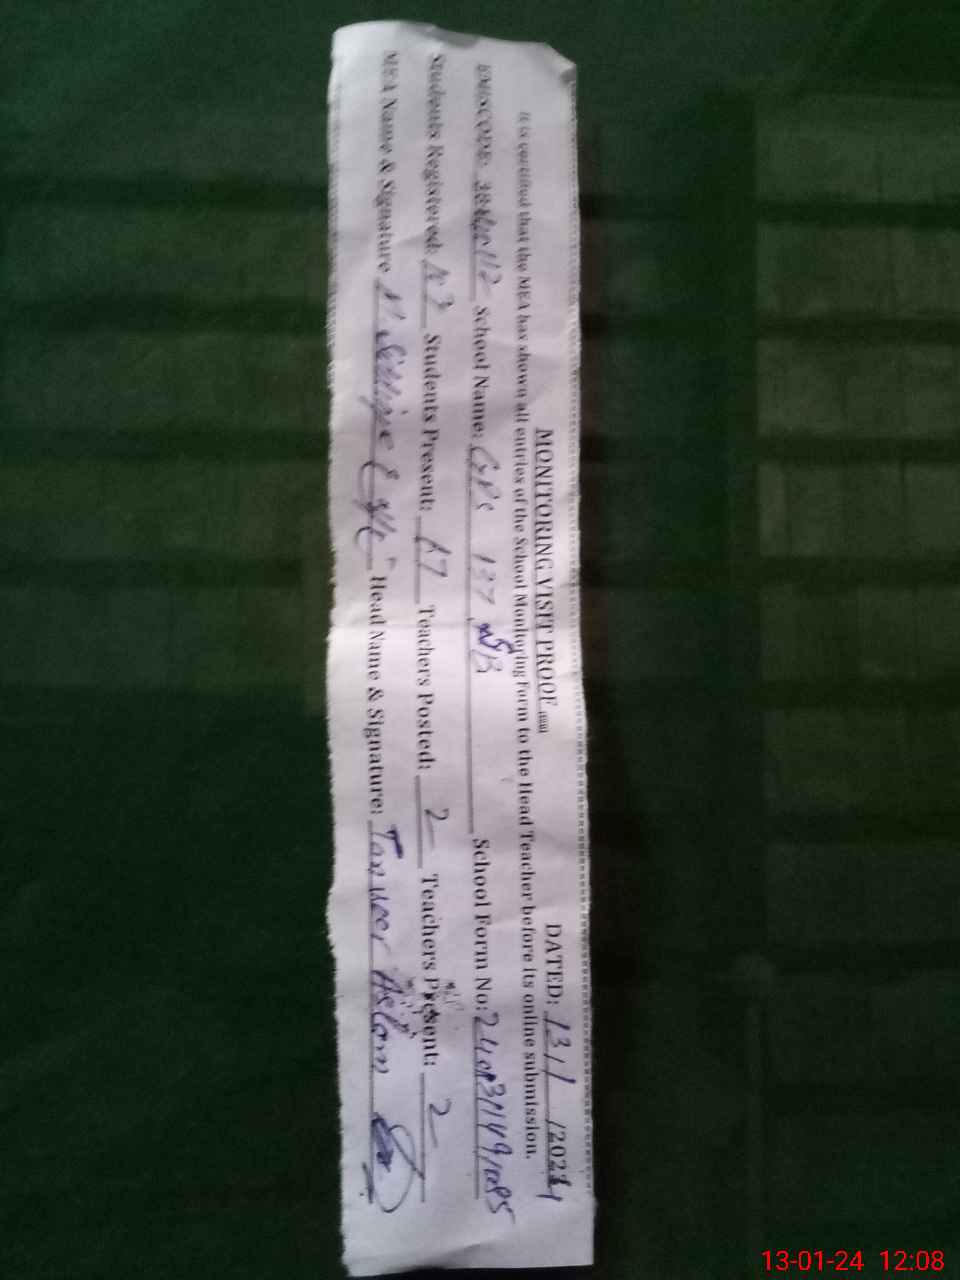 MONITORING VISIT PROOF DATED: 13/1/2024
It is certified that the MEA has shown all entries of the School Monitoring Form to the Head Teacher before its online submission.
EMISCODE: School Name: GPS 137 SB School Form No:
Students Registered: Students Present: 67 Teachers Posted: 2 Teachers Present: 2
MEA Name & Signature Head Name & Signature: Tanveer Aslam
13-01-24 12:08